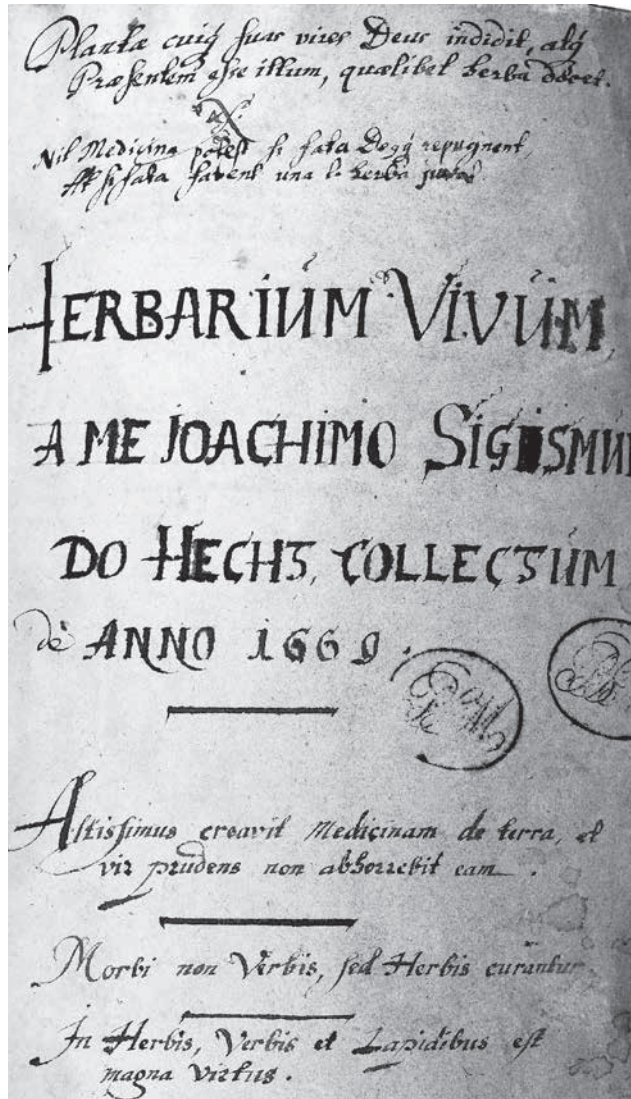 Plantæ cuiq suas vires Deus indidit, atq
Præsentem esse illum, quælibet herba docet.
Nil Medicina potest si fata Deqq repugnent,
si fata favent una herba
HERBARIUM VIVUM,
A ME JOACHIMO SIGISMUN
DO HECHT, COLLECTUM
de ANNO 1669.
Altissimus creavit Medicinam de terra, et
vir prudens non abhorrebit eam.
Morbi non Verbis, sed Herbis curantur.
In Herbis, Verbis et Lapidibus est
magna virtus.